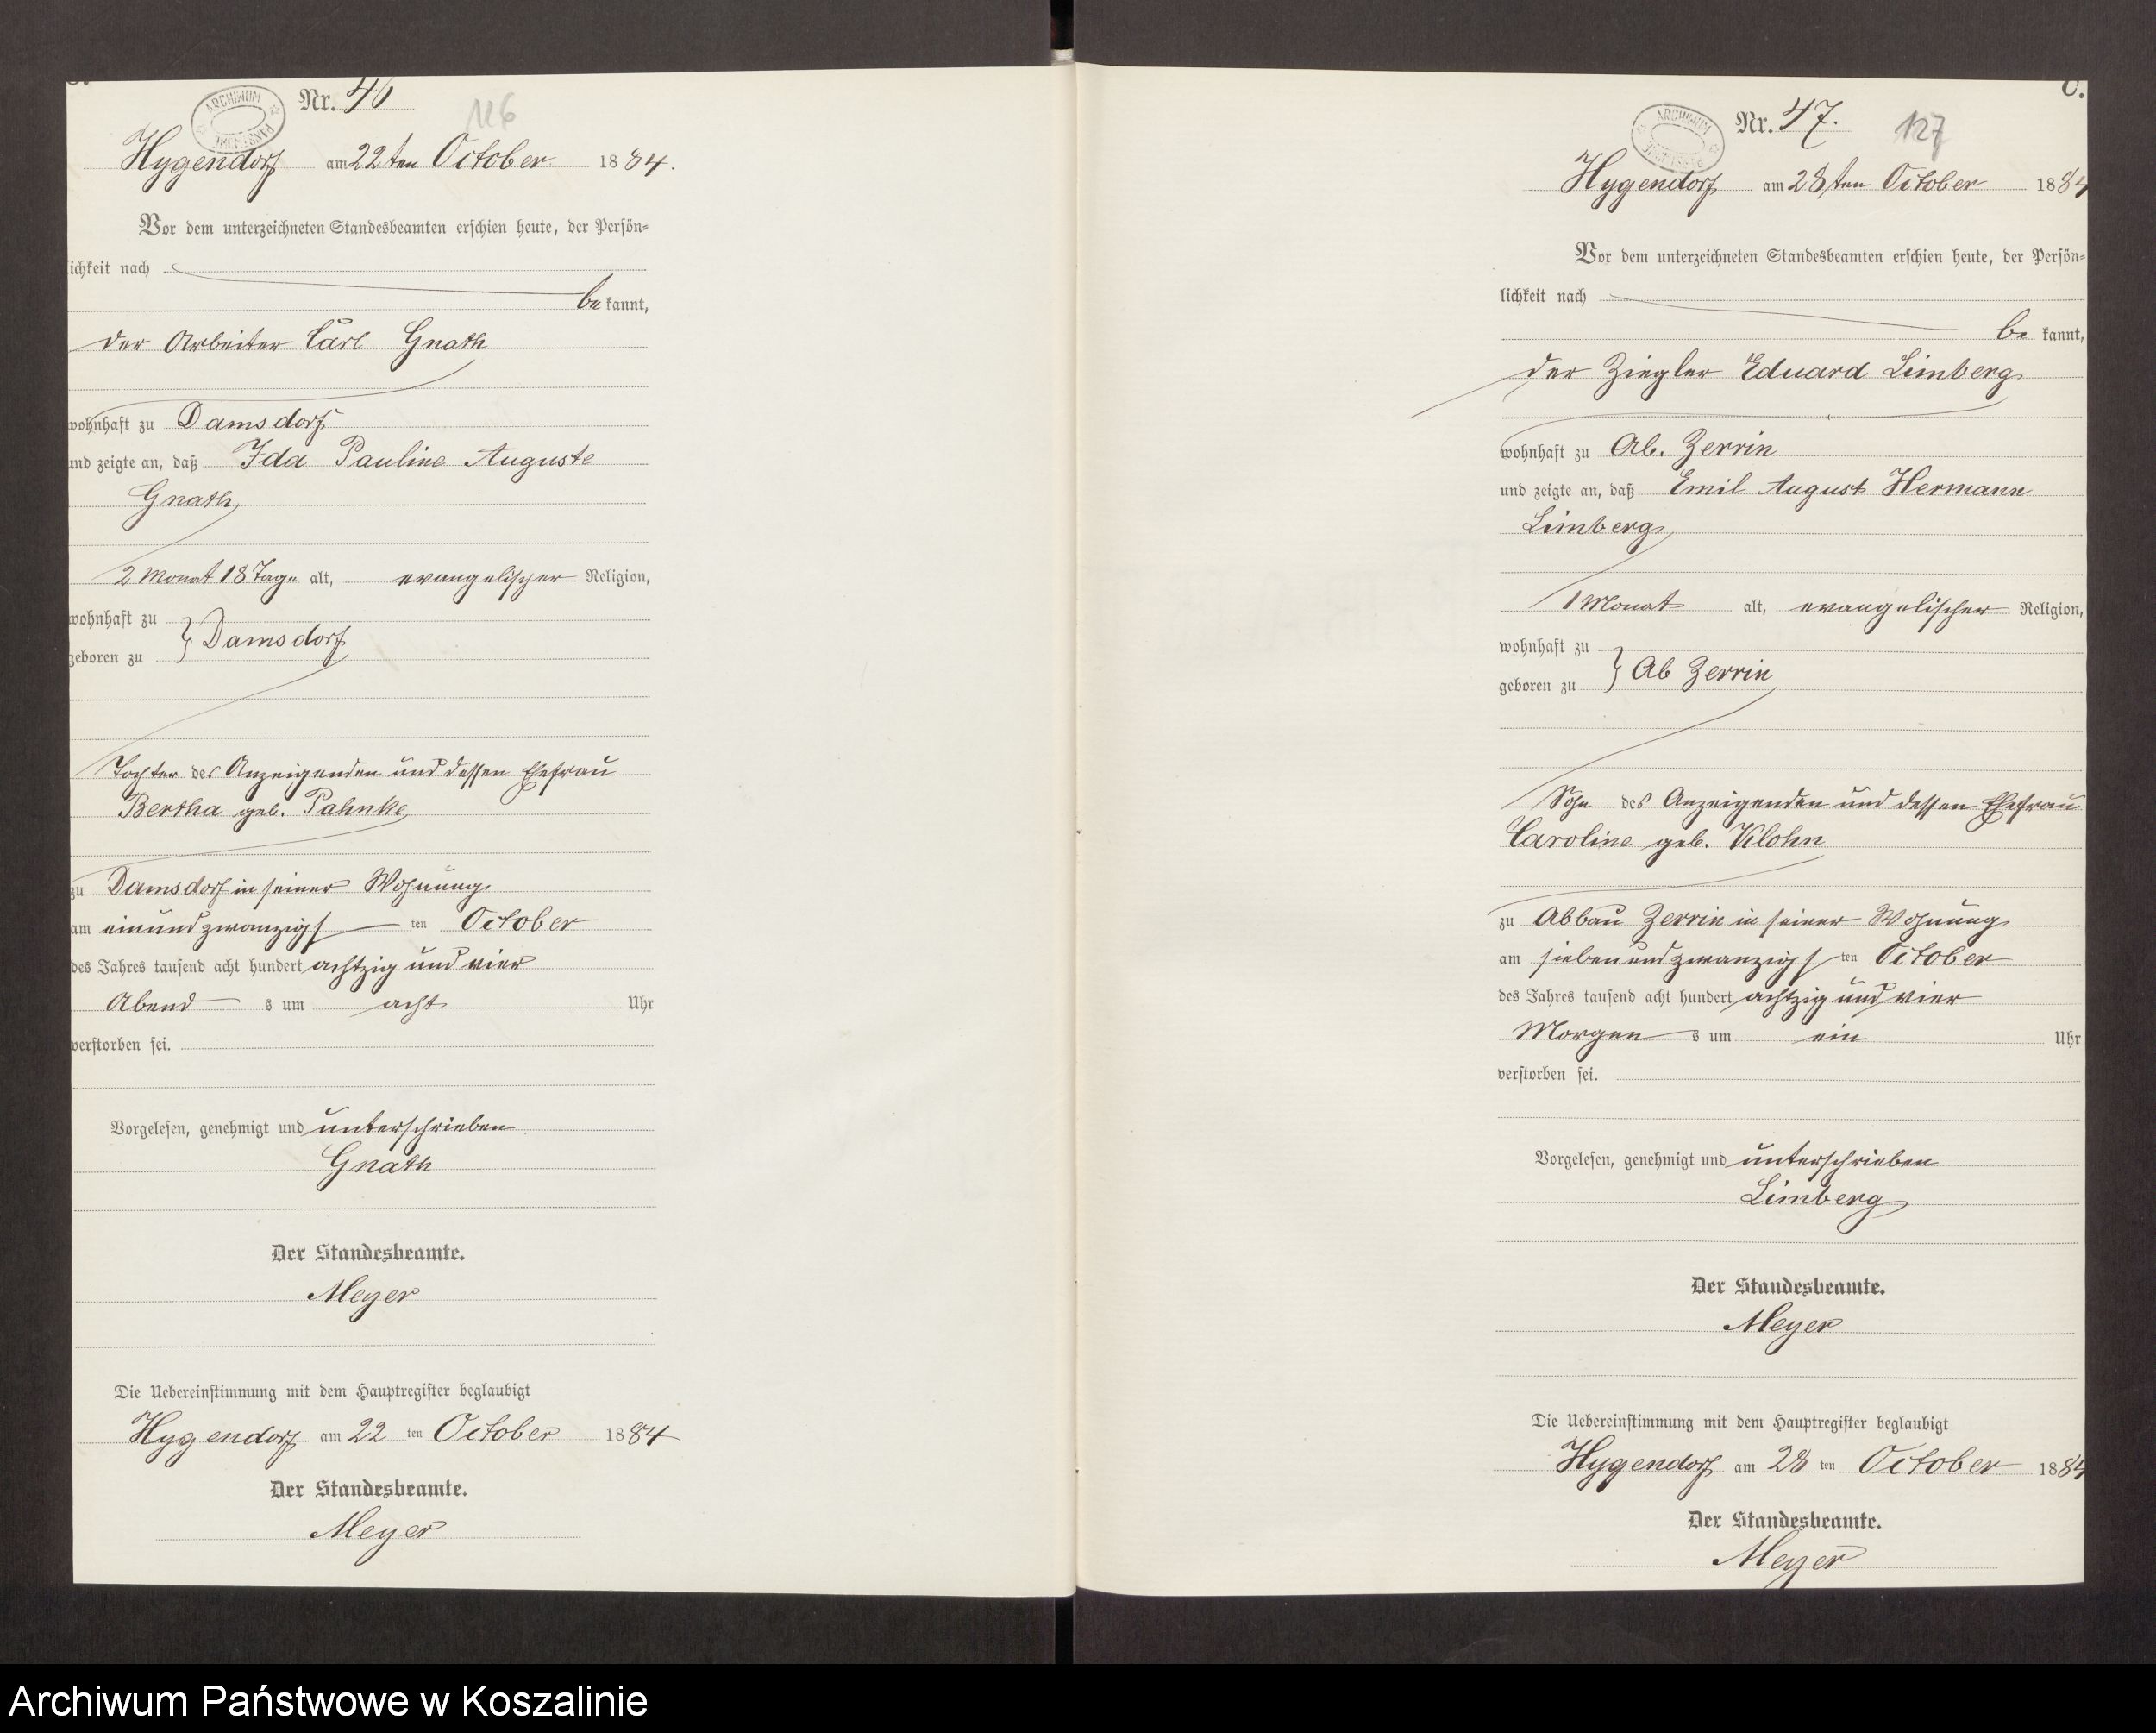 Nr. 46
126
Hygendorf am 22ten October 1884.
Vor dem unterzeichneten Standesbeamten erschien heute, der Persön=
lichkeit nach
bekannt,
der Arbeiter Carl Gnath
wohnhaft zu Damsdorf
und zeigte an, daß Ida Pauline Auguste
Gnath,
2 Monat 18 Tage alt, evangelischer Religion,
wohnhaft zu
geboren zu } Damsdorf
Tochter des Anzeigenden und dessen Ehefrau
Bertha geb. Pahnke,
zu Damsdorf in seiner Wohnung
am einundzwanzigsten October
des Jahres tausend acht hundert achtzig und vier
Abends um acht Uhr
verstorben sei.
Vorgelesen, genehmigt und unterschrieben
Gnath
Der Standesbeamte.
Meyer
Die Uebereinstimmung mit dem Hauptregister beglaubigt
Hygendorf am 22ten October 1884
Der Standesbeamte.
Meyer
C.
Nr. 47.
127
ARCHIWUM
Hygendorf am 28ten October 1884
Vor dem unterzeichneten Standesbeamten erschien heute, der Persön=
lichkeit nach
bekannt,
der Ziegler Eduard Limberg
wohnhaft zu Ab. Zerrin
und zeigte an, daß Emil August Hermann
Limberg,
1 Monat alt, evangelischer Religion,
wohnhaft zu
geboren zu } Ab Zerrin
Sohn des Anzeigenden und dessen Ehefrau
Caroline geb. Klohn
zu Abbau Zerrin in seiner Wohnung
am siebenundzwanzigsten October
des Jahres tausend acht hundert achtzig und vier
Morgens um ein Uhr
verstorben sei.
Vorgelesen, genehmigt und unterschrieben
Limberg
Der Standesbeamte.
Meyer
Die Uebereinstimmung mit dem Hauptregister beglaubigt
Hygendorf am 28ten October 1884
Der Standesbeamte.
Meyer
Archiwum Państwowe w Koszalinie